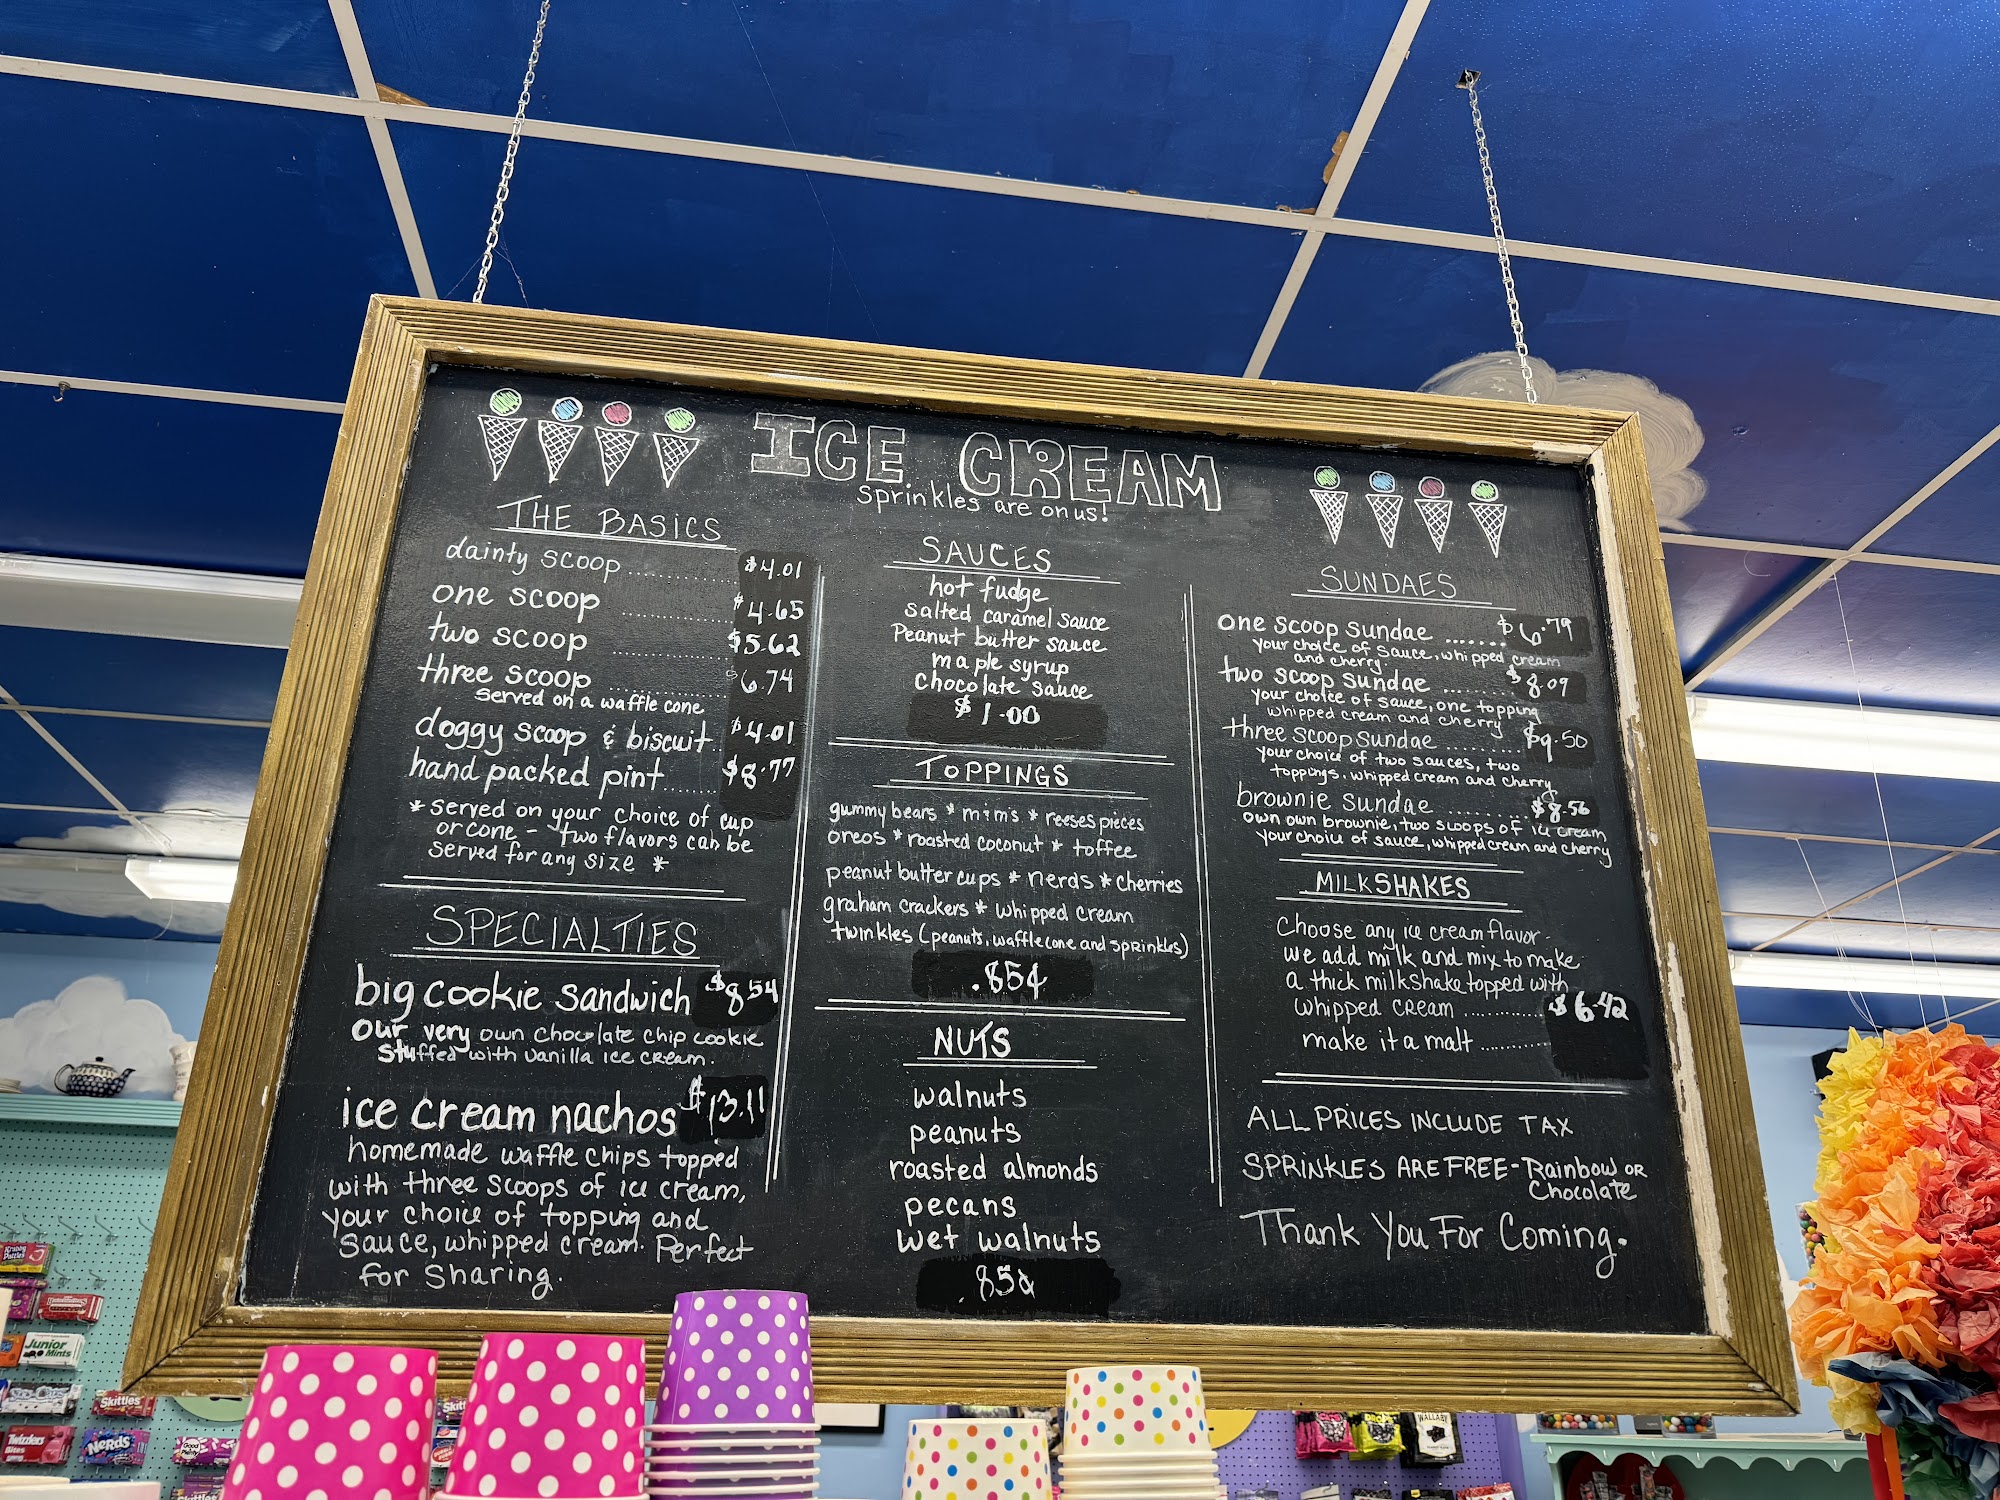 ICE CREAM
Sprinkles are on us!
THE BASICS
dainty scoop ........... $4.01
one scoop ........... $4.65
two scoop ........... $5.62
three scoop ........... $6.74
served on a waffle cone
doggy scoop & biscuit.. $4.01
hand packed pint...... $8.77
* served on your choice of cup
or cone - two flavors can be
served for any size *
SPECIALTIES
big cookie sandwich $8.54
our very own chocolate chip cookie
stuffed with vanilla ice cream.
ice cream nachos $13.11
homemade waffle chips topped
with three scoops of ice cream,
your choice of topping and
sauce, whipped cream. Perfect
for sharing.
SAUCES
hot fudge
salted caramel sauce
Peanut butter sauce
maple syrup
chocolate sauce
$1.00
TOPPINGS
gummy bears * m&m's * reeses pieces
oreos * roasted coconut * toffee
peanut butter cups * nerds * cherries
graham crackers * whipped cream
twinkles (peanuts, waffle cone and sprinkles)
.85¢
NUTS
walnuts
peanuts
roasted almonds
pecans
wet walnuts
.85¢
SUNDAES
one scoop sundae ....... $6.79
your choice of sauce, whipped cream
and cherry.
two scoop sundae ........ $8.09
your choice of sauce, one topping
whipped cream and cherry
three scoop sundae ......... $9.50
your choice of two sauces, two
toppings, whipped cream and cherry
brownie sundae ......... $8.56
own own brownie, two scoops of ice cream
your choice of sauce, whipped cream and cherry
MILKSHAKES
Choose any ice cream flavor-
we add milk and mix to make
a thick milkshake topped with
whipped cream ............ $6.42
make it a malt ..........
ALL PRICES INCLUDE TAX
SPRINKLES ARE FREE - Rainbow or
Chocolate
Thank You For Coming.
Junior
Mints
Skittles
Twizzlers
Bites
Nerds
Good
Plenty
WALLABY